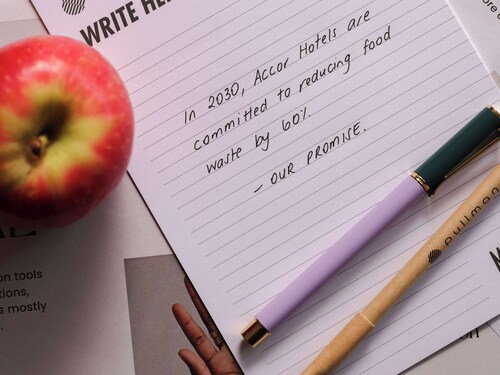 WRITE HE
In 2030, Accor Hotels are
committed to reducing food
waste by 60%.
- OUR PROMISE.
pullman
on tools
tions,
s mostly